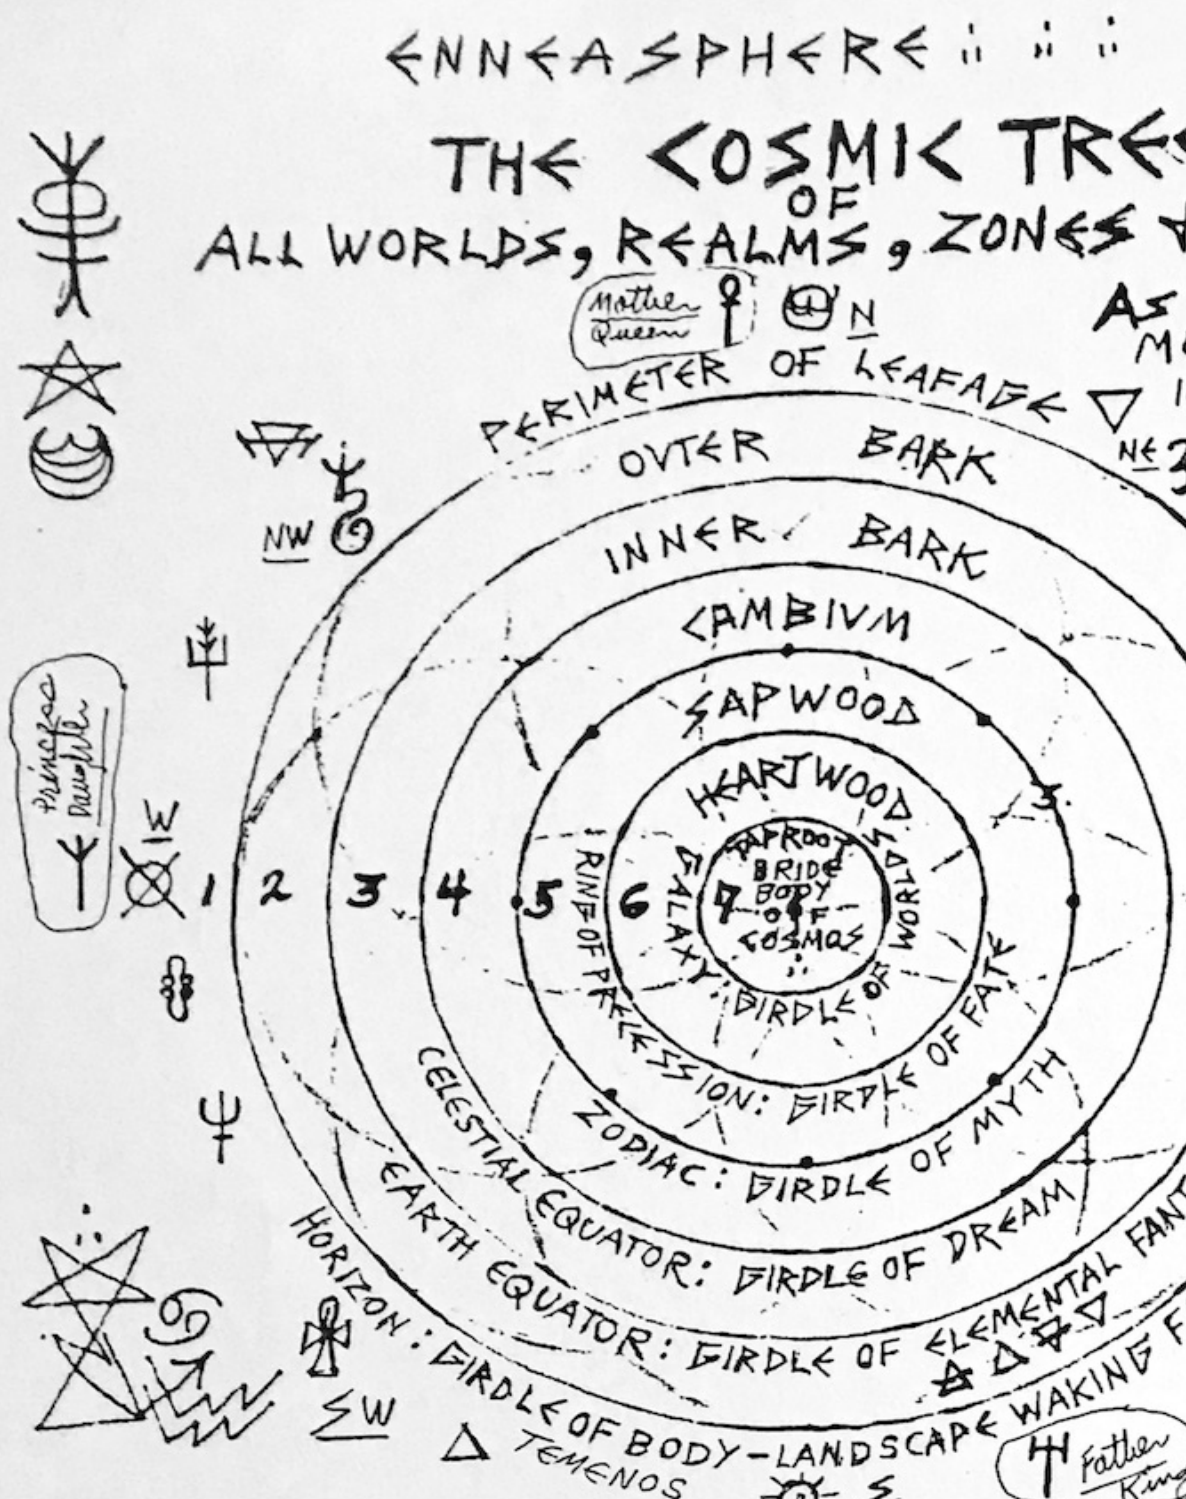 ENNEASPHERE
THE COSMIC TREE
OF
ALL WORLDS, REALMS, ZONES &
AS
Mother
Queen
N
PERIMETER OF LEAFAGE
NE
OUTER BARK
NW
INNER BARK
CAMBIUM
SAPWOOD
HEARTWOOD
Princess
Daughter
W
TAPROOT
BRIDE
BODY
OF
COSMOS
1 2 3 4 5 6 7
GALAXY: GIRDLE OF WORLDS
RING OF PRECESSION: GIRDLE OF FATE
ZODIAC: GIRDLE OF MYTH
CELESTIAL EQUATOR: GIRDLE OF DREAM
EARTH EQUATOR: GIRDLE OF ELEMENTAL FANT
HORIZON: GIRDLE OF BODY-LANDSCAPE WAKING
SW
TEMENOS
S
Father
King